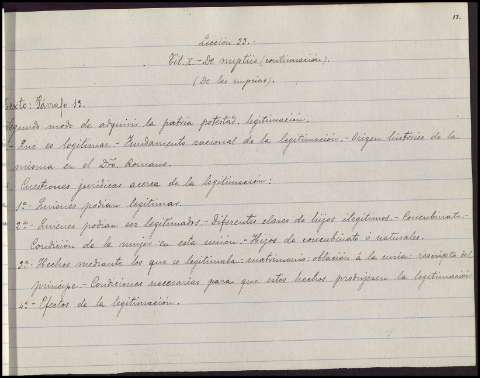 17.
Lección 23.-
Tit. X - De nuptiis (continuación).
(De las nupcias).
Texto: Párrafo 13.
Segundo modo de adquirir la patria potestad, legitimación.
- Que es legitimar.- Fundamento racional de la legitimación.- Origen histórico de la
misma en el Dro. Romano.
- Cuestiones jurídicas acerca de la legitimación:
1ª- Quienes podían legitimar.
2ª- Quienes podían ser legitimados.- Diferentes clases de hijos ilegítimos.- Concubinato.-
Condición de la mujer en esta unión.- Hijos de concubinato ó naturales.
3ª- Hechos mediante los que se legitimaba: matrimonio: oblación á la curia: rescripto del
príncipe.- Condiciones necesarias para que estos hechos produjesen la legitimación
4ª- Efectos de la legitimación.